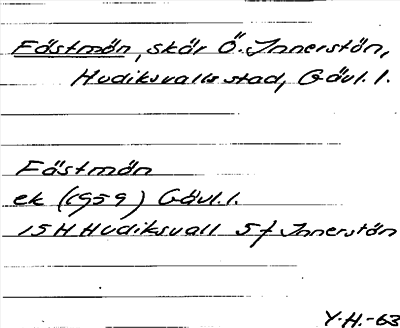 Fästmön, skär Ö. Innerstön,
Hudiksvalls stad, Gävl. l.
Fästmön
ek (1959) Gävl. l.
15H Hudiksvall 5f Innerstön
Y.H.-63